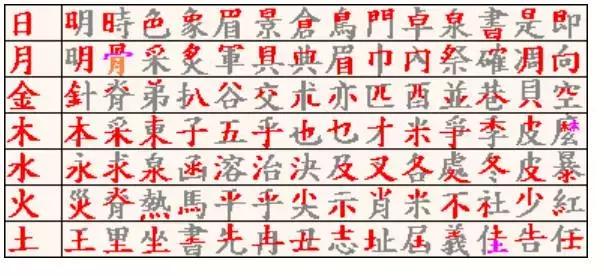 日 明 時 色 象 眉 景 倉 鳥 門 卓 泉 書 是 即
月 明 骨 采 炙 軍 具 典 眉 巾 內 祭 確 凋 向
金 針 脊 弟 扒 谷 交 朮 亦 匹 酉 並 巷 貝 空
木 本 采 東 子 五 乎 也 乜 才 米 爭 季 皮 麼
水 永 求 泉 函 溶 治 決 及 叉 各 處 冬 皮 暴
火 災 脊 熱 馬 平 乎 尖 示 肖 米 不 社 少 紅
土 王 里 坐 書 先 冉 丑 志 址 屆 義 告 任